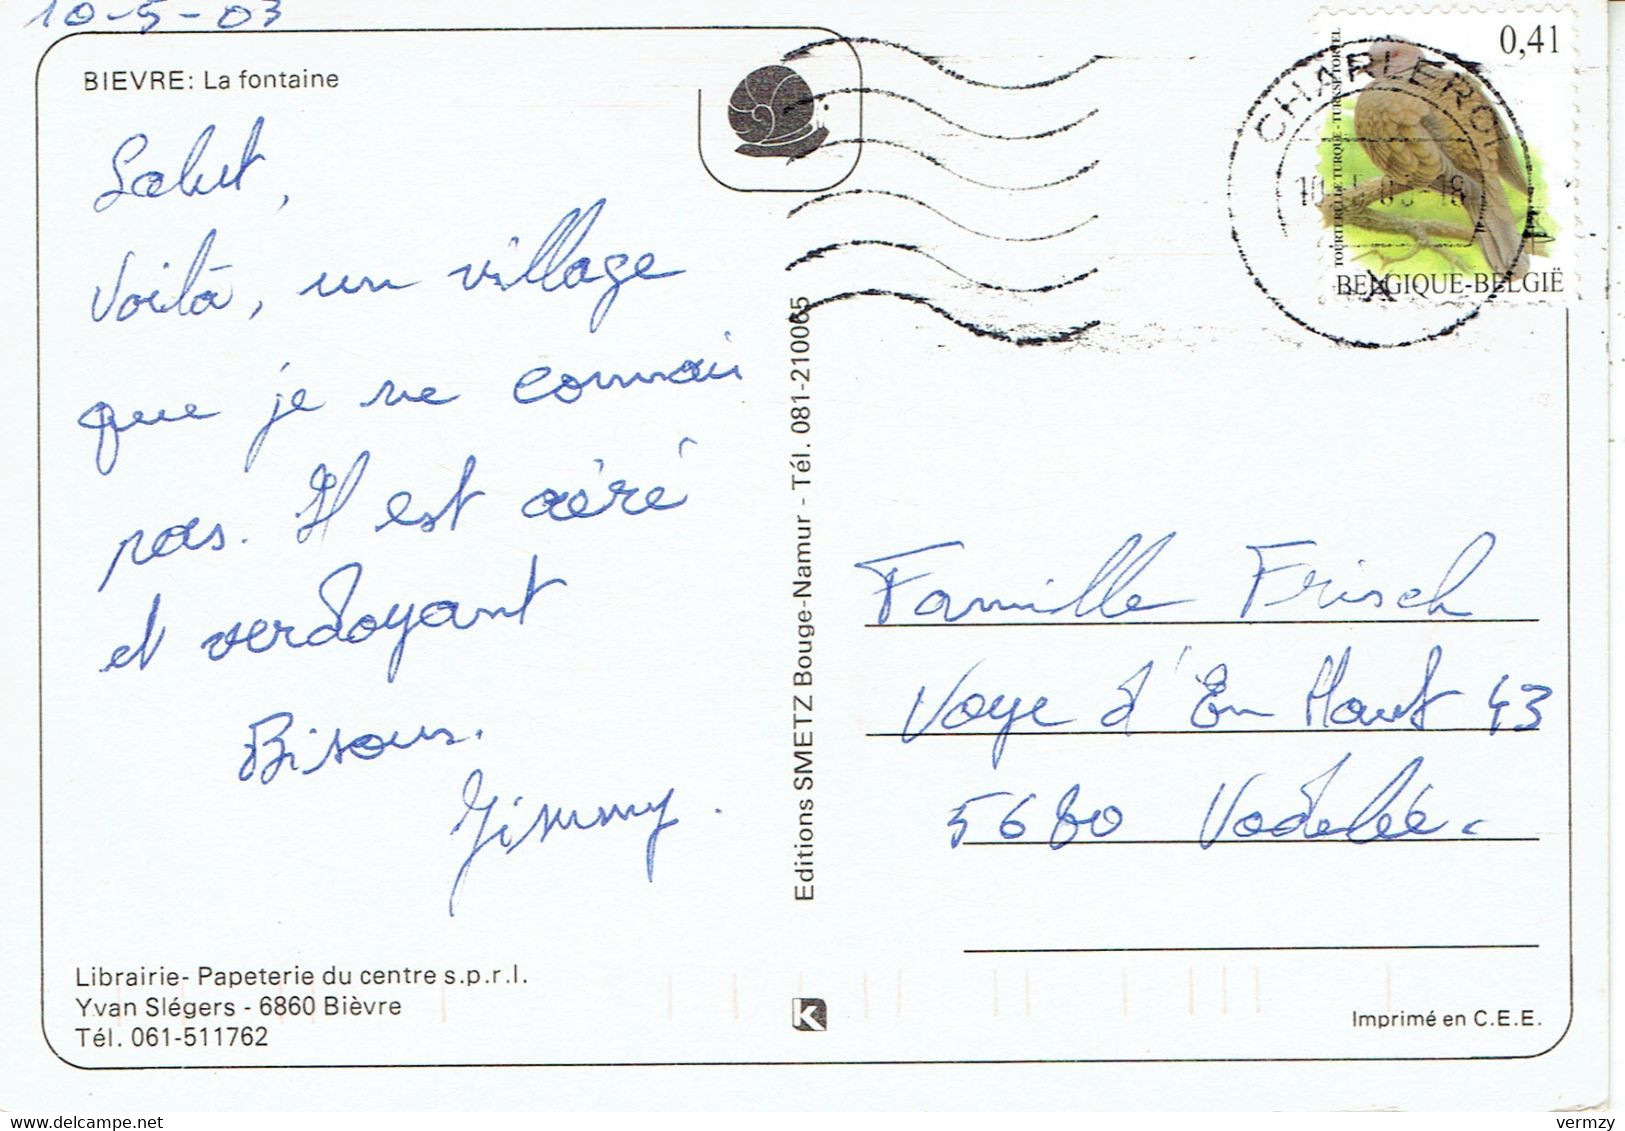 10-5-03
BIEVRE: La fontaine
Salut,
Voilà, un village
que je ne connais
pas. Il est aéré
et verdoyant
Bisous.
Jimmy.
Librairie- Papeterie du centre s.p.r.l.
Yvan Slégers - 6860 Bièvre
Tél. 061-511762
Editions SMETZ Bouge-Namur - Tél. 081-210065
K
0,41
TOURTERELLE TURQUE - TURKSE TORTEL
BELGIQUE-BELGIË
CHARLEROI
A
Famille Frisch
Voye d'En Haut 43
5680 Vodelée.
Imprimé en C.E.E.
vermzy